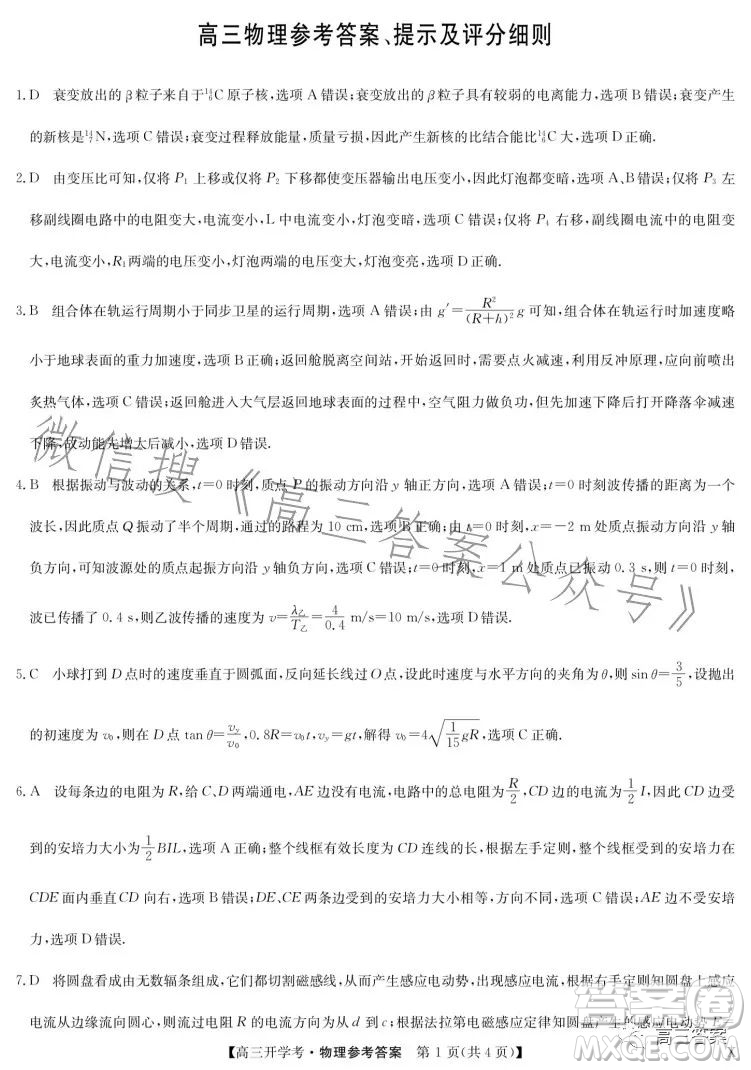 高三物理参考答案、提示及评分细则
1. D 衰变放出的β粒子来自于¹⁴₆C原子核,选项A错误;衰变放出的β粒子具有较弱的电离能力,选项B错误;衰变产生
的新核是¹⁴₇N,选项C错误;衰变过程释放能量,质量亏损,因此产生新核的比结合能比¹⁴₆C大,选项D正确.
2. D 由变压比可知,仅将P₁上移或仅将P₂下移都使变压器输出电压变小,因此灯泡都变暗,选项A、B错误;仅将P₃左
移副线圈电路中的电阻变大,电流变小,L中电流变小,灯泡变暗,选项C错误;仅将P₄右移,副线圈电路中的电阻变
大,电流变小,R₁两端的电压变小,灯泡两端的电压变大,灯泡变亮,选项D正确.
3. B 组合体在轨运行周期小于同步卫星的运行周期,选项A错误;由g′=R²/(R+h)²g可知,组合体在轨运行时加速度略
小于地球表面的重力加速度,选项B正确;返回舱脱离空间站,开始返回时,需要点火减速,利用反冲原理,应向前喷出
炙热气体,选项C错误;返回舱进入大气层返回地球表面的过程中,空气阻力做负功,但先加速下降后打开降落伞减速
下降,故动能先增大后减小,选项D错误.
4. B 根据振动与波动的关系,t=0时刻,质点P的振动方向沿y轴正方向,选项A错误;t=0时刻波传播的距离为一个
波长,因此质点Q振动了半个周期,通过的路程为10 cm,选项B正确;由t=0时刻,x=-2 m处质点振动方向沿y轴
负方向,可知波源处的质点起振方向沿y轴负方向,选项C错误;t=0时刻,x=1 m处质点已振动0.3 s,则t=0时刻,
波已传播了0.4 s,则乙波传播的速度为v=λ乙/T乙=4/0.4 m/s=10 m/s,选项D错误.
5. C 小球打到D点时的速度垂直于圆弧面,反向延长线过O点,设此时速度与水平方向的夹角为θ,则sinθ=3/5,设抛出
的初速度为v₀,则在D点tanθ=vᵧ/v₀,0.8R=v₀t,vᵧ=gt,解得v₀=4√(1/15 gR),选项C正确.
6. A 设每条边的电阻为R,给C、D两端通电,AE边没有电流,电路中的总电阻为R/2,CD边的电流为1/2I,因此CD边受
到的安培力大小为1/2BIL,选项A正确;整个线框有效长度为CD连线的长,根据左手定则,整个线框受到的安培力在
CDE面内垂直CD向右,选项B错误;DE、CE两条边受到的安培力大小相等,方向不同,选项C错误;AE边不受安培
力,选项D错误.
7. D 将圆盘看成由无数辐条组成,它们都切割磁感线,从而产生感应电动势,出现感应电流,根据右手定则知圆盘上感应
电流从边缘流向圆心,则流过电阻R的电流方向为从d到c;根据法拉第电磁感应定律知圆盘产生的感应电动势
【高三开学考·物理参考答案 第1页(共4页)】
X
微信搜《高三答案公众号》
答案圈
高三答案